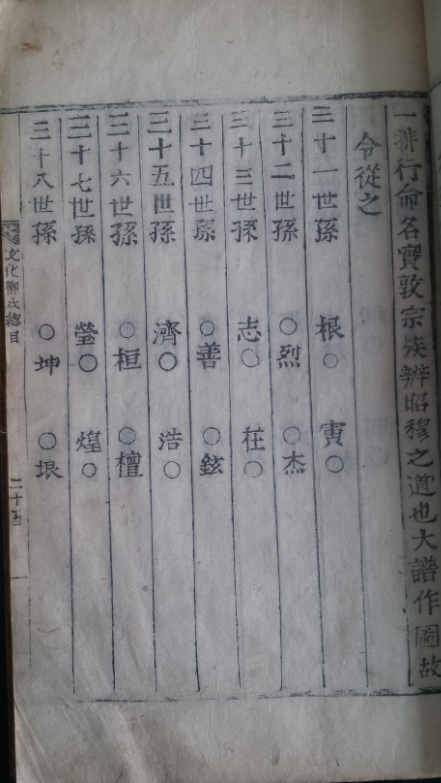 一排行命名實敦宗族辨昭穆之道也大譜作圖故
今從之
三十一世孫 根 寅○
三十二世孫 ○烈 ○杰
三十三世孫 志○ 在○
三十四世孫 ○善 ○鉉
三十五世孫 濟○ 浩○
三十六世孫 ○桓 ○檀
三十七世孫 瑩○ 煌○
三十八世孫 ○坤 ○垠
文化柳氏總目
二十五